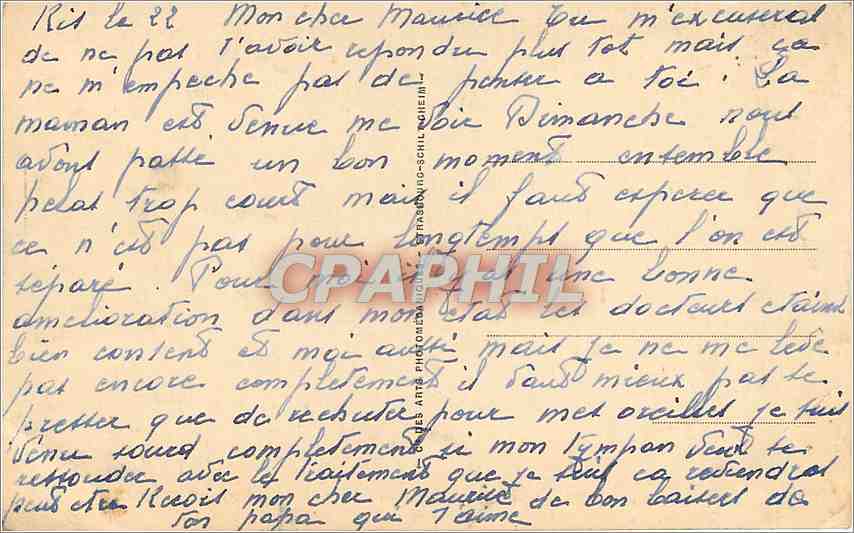 le 22 Mon cher Maurice Tu m'excuseras
de ne pas t'avoir repondu plus tot mais ça
ne m'empeche pas de penser a toi. Ta
maman est venue me voir Dimanche nous
avons passé un bon moment ensemble
helas trop court mais il faut esperer que
ce n'est pas pour longtemps que l'on est
séparé. Pour moi une bonne
amelioration dans mon etat les docteurs etaient
bien contents et moi aussi mais je ne me leve
pas encore completement il vaut mieux pas se
presser que de rechuter pour mes oreilles je suis
venu sourd completement si mon tympan veut se
ressouder avec le traitement que je suis ca reviendrat
peut etre Recois mon cher Maurice de bon baisers de
ton papa qui t'aime
DES ARTS PHOTOMECANIQUES - STRASBOURG-SCHILTIGHEIM
CPAPHIL